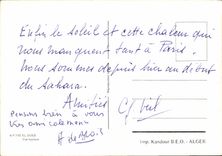 Enfin le soleil et cette chaleur qui
nous manquent tant à Paris.
Nous sommes depuis hier au début
du Sahara.
Amitiés
Pensons bien à vous
Très amicalement
Imp. Kandour B.E.O. - ALGER